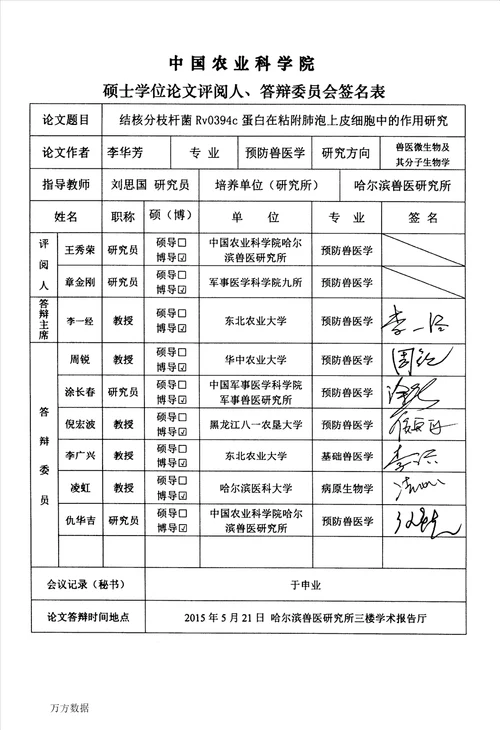 中国农业科学院
硕士学位论文评阅人、答辩委员会签名表
论文题目 结核分枝杆菌 Rv0394c 蛋白在粘附肺泡上皮细胞中的作用研究
论文作者 李华芳 专 业 预防兽医学 研究方向 兽医微生物及其分子生物学
指导教师 刘思国 研究员 培养单位（研究所） 哈尔滨兽医研究所
姓名 职称 硕（博） 单 位 专 业 签 名
评阅人
王秀荣 研究员 硕导□ 博导☑ 中国农业科学院哈尔滨兽医研究所 预防兽医学
章金刚 研究员 硕导□ 博导☑ 军事医学科学院九所 预防兽医学
答辩主席
李一经 教授 硕导□ 博导☑ 东北农业大学 预防兽医学 李一经
答辩委员
周锐 教授 硕导□ 博导☑ 华中农业大学 预防兽医学 周锐
涂长春 研究员 硕导□ 博导☑ 中国军事医学科学院军事兽医研究所 预防兽医学
倪宏波 教授 硕导□ 博导☑ 黑龙江八一农垦大学 预防兽医学
李广兴 教授 硕导□ 博导☑ 东北农业大学 基础兽医学
凌虹 教授 硕导□ 博导☑ 哈尔滨医科大学 病原生物学
仇华吉 研究员 硕导□ 博导☑ 中国农业科学院哈尔滨兽医研究所 预防兽医学
会议记录（秘书） 于申业
论文答辩时间地点 2015 年 5 月 21 日 哈尔滨兽医研究所三楼学术报告厅
万方数据